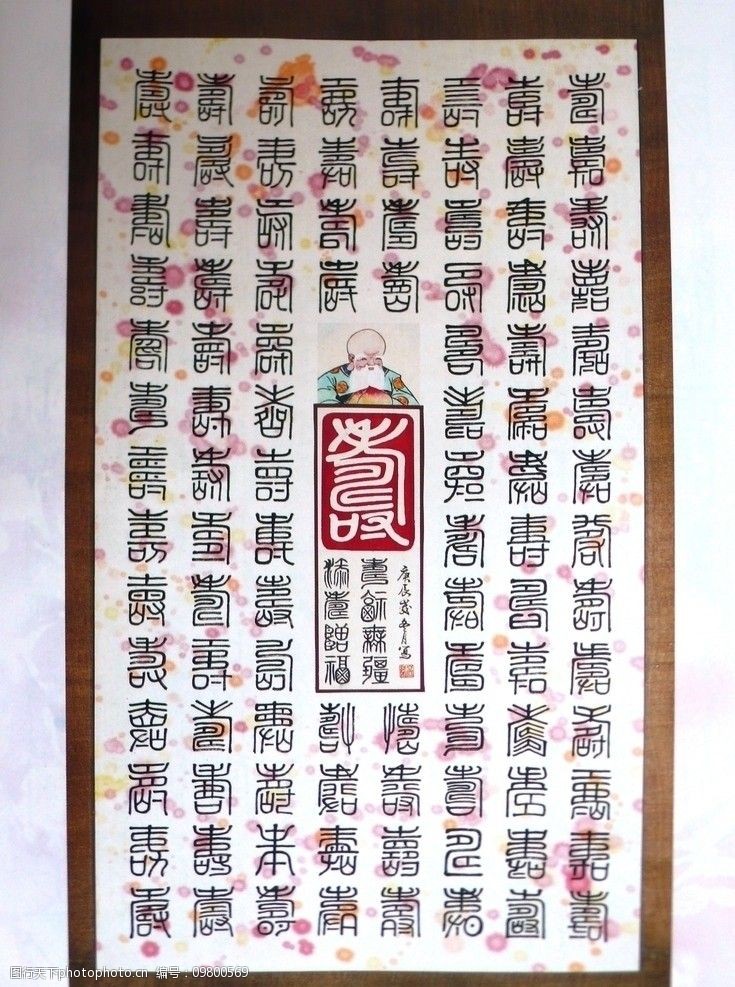 壽壽壽壽壽壽壽壽壽壽壽壽壽壽
壽壽壽壽壽壽壽壽壽壽壽壽壽壽
壽壽壽壽壽壽壽壽壽壽壽壽壽壽
壽壽壽壽
壽壽壽壽
壽
壽齡無疆
添壽福
庚辰歲月寫
壽壽壽壽
壽壽壽壽
壽壽壽壽壽壽壽壽壽壽壽壽壽壽
壽壽壽壽壽壽壽壽壽壽壽壽壽壽
壽壽壽壽壽壽壽壽壽壽壽壽壽壽
图行天下photophoto.cn 编号：09800569